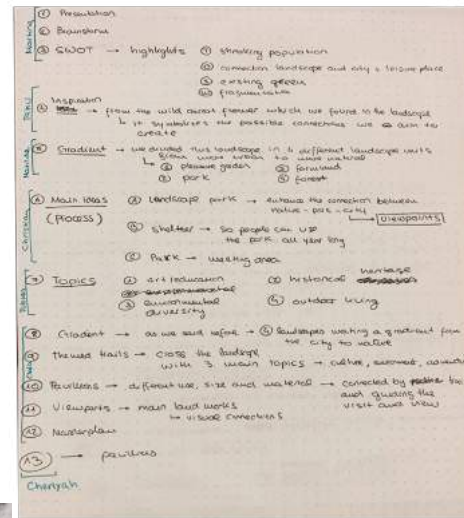 ① Presentation
② Brainstorm
③ SWOT → highlights ① shrinking population
② connection landscape and city & leisure place
③ existing green
④ fragmentation
④ Inspiration → from the wild flower which we found in the landscape
↳ it symbolizes the possible connections we aim to create
⑤ Gradient → we divided this landscape in 4 different landscape units
from more urban to more natural
① pleasure garden ③ farmland
② park ④ forest
⑥ Main Ideas → landscape park → enhance the connection between
(Process) nature - park - city
↳ viewpoints
shelter → so people can use
the park all year long
Park → meeting area
⑦ Topics ① art/education ② historical heritage
③ environmental diversity ④ outdoor living
⑧ Gradient → as we said before → ④ landscapes making a gradient from
the city to nature
⑨ Themed trails → cross the landscape
with 3 main topics → culture,
⑩ Pavilions → different use, size and material → connected by
and guiding the
visit and view
⑪ Viewpoints → main land works
↳ visual connections
⑫ Masterplan
⑬ → pavilions